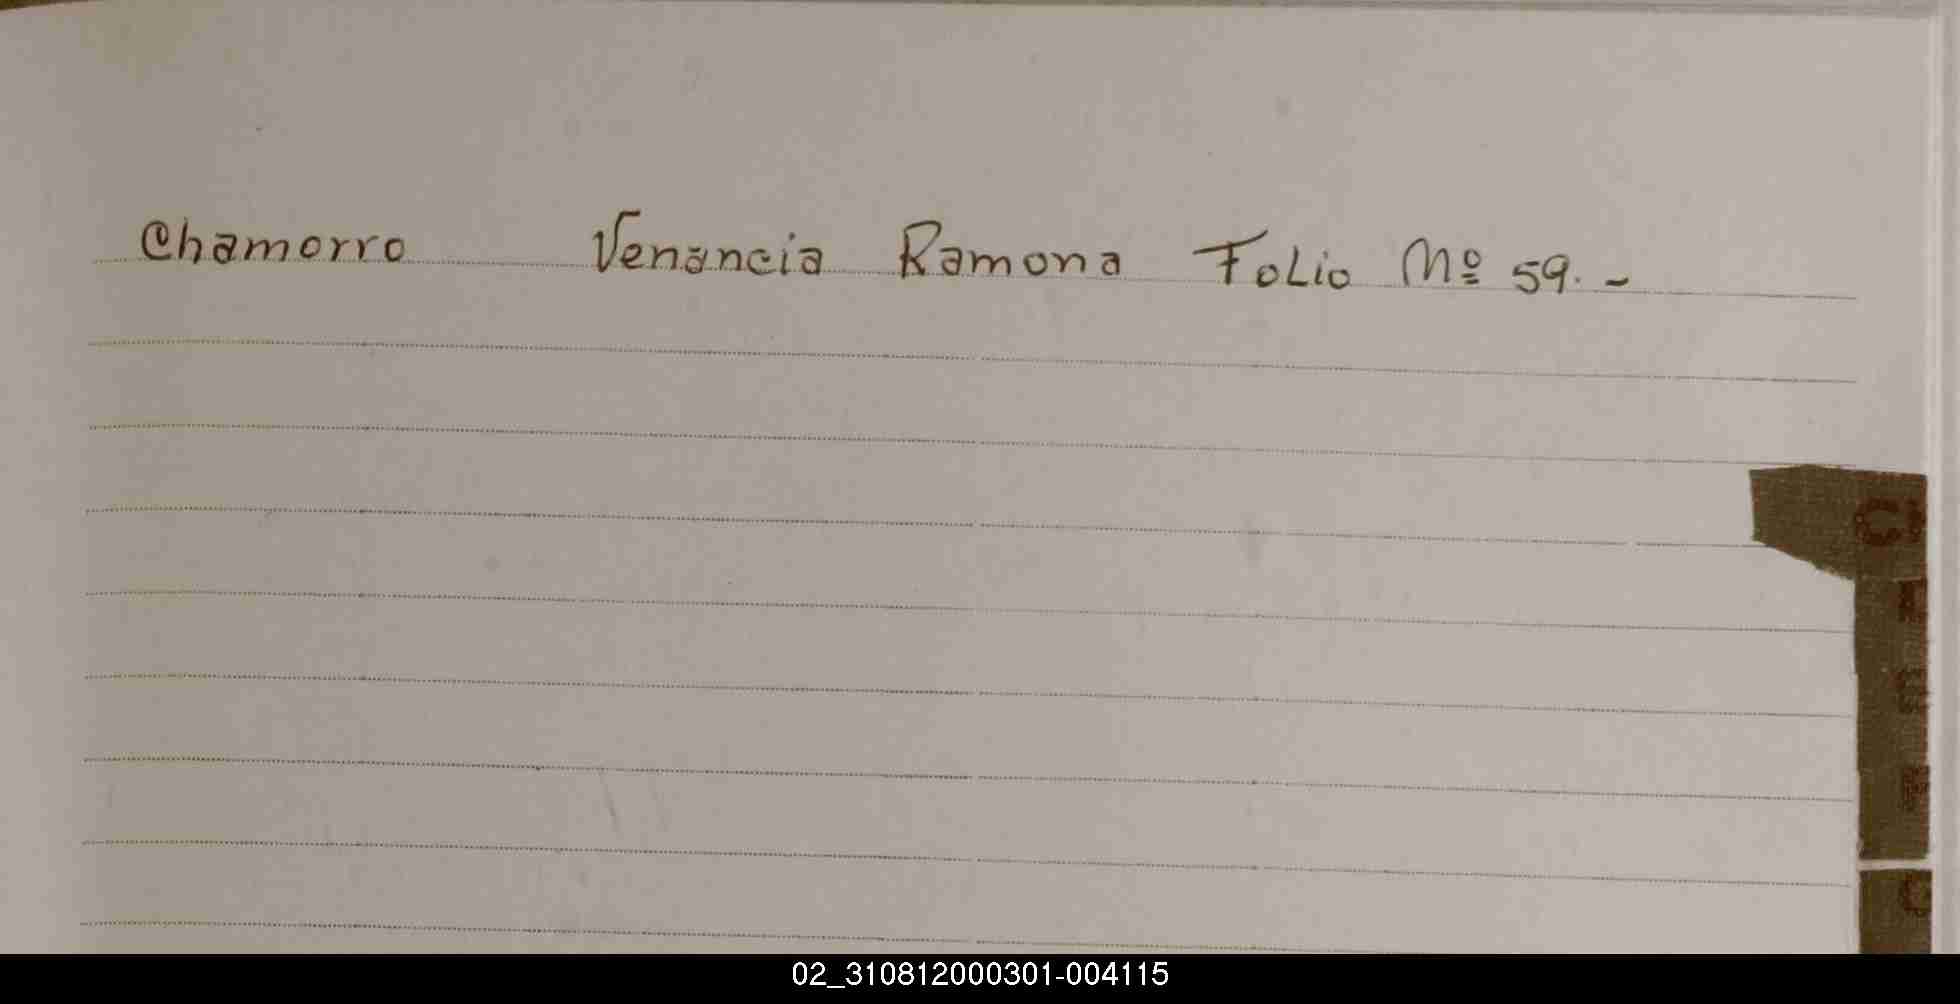 Chamorro Venancia Ramona Folio Nº 59. -
CH
02_310812000301-004115